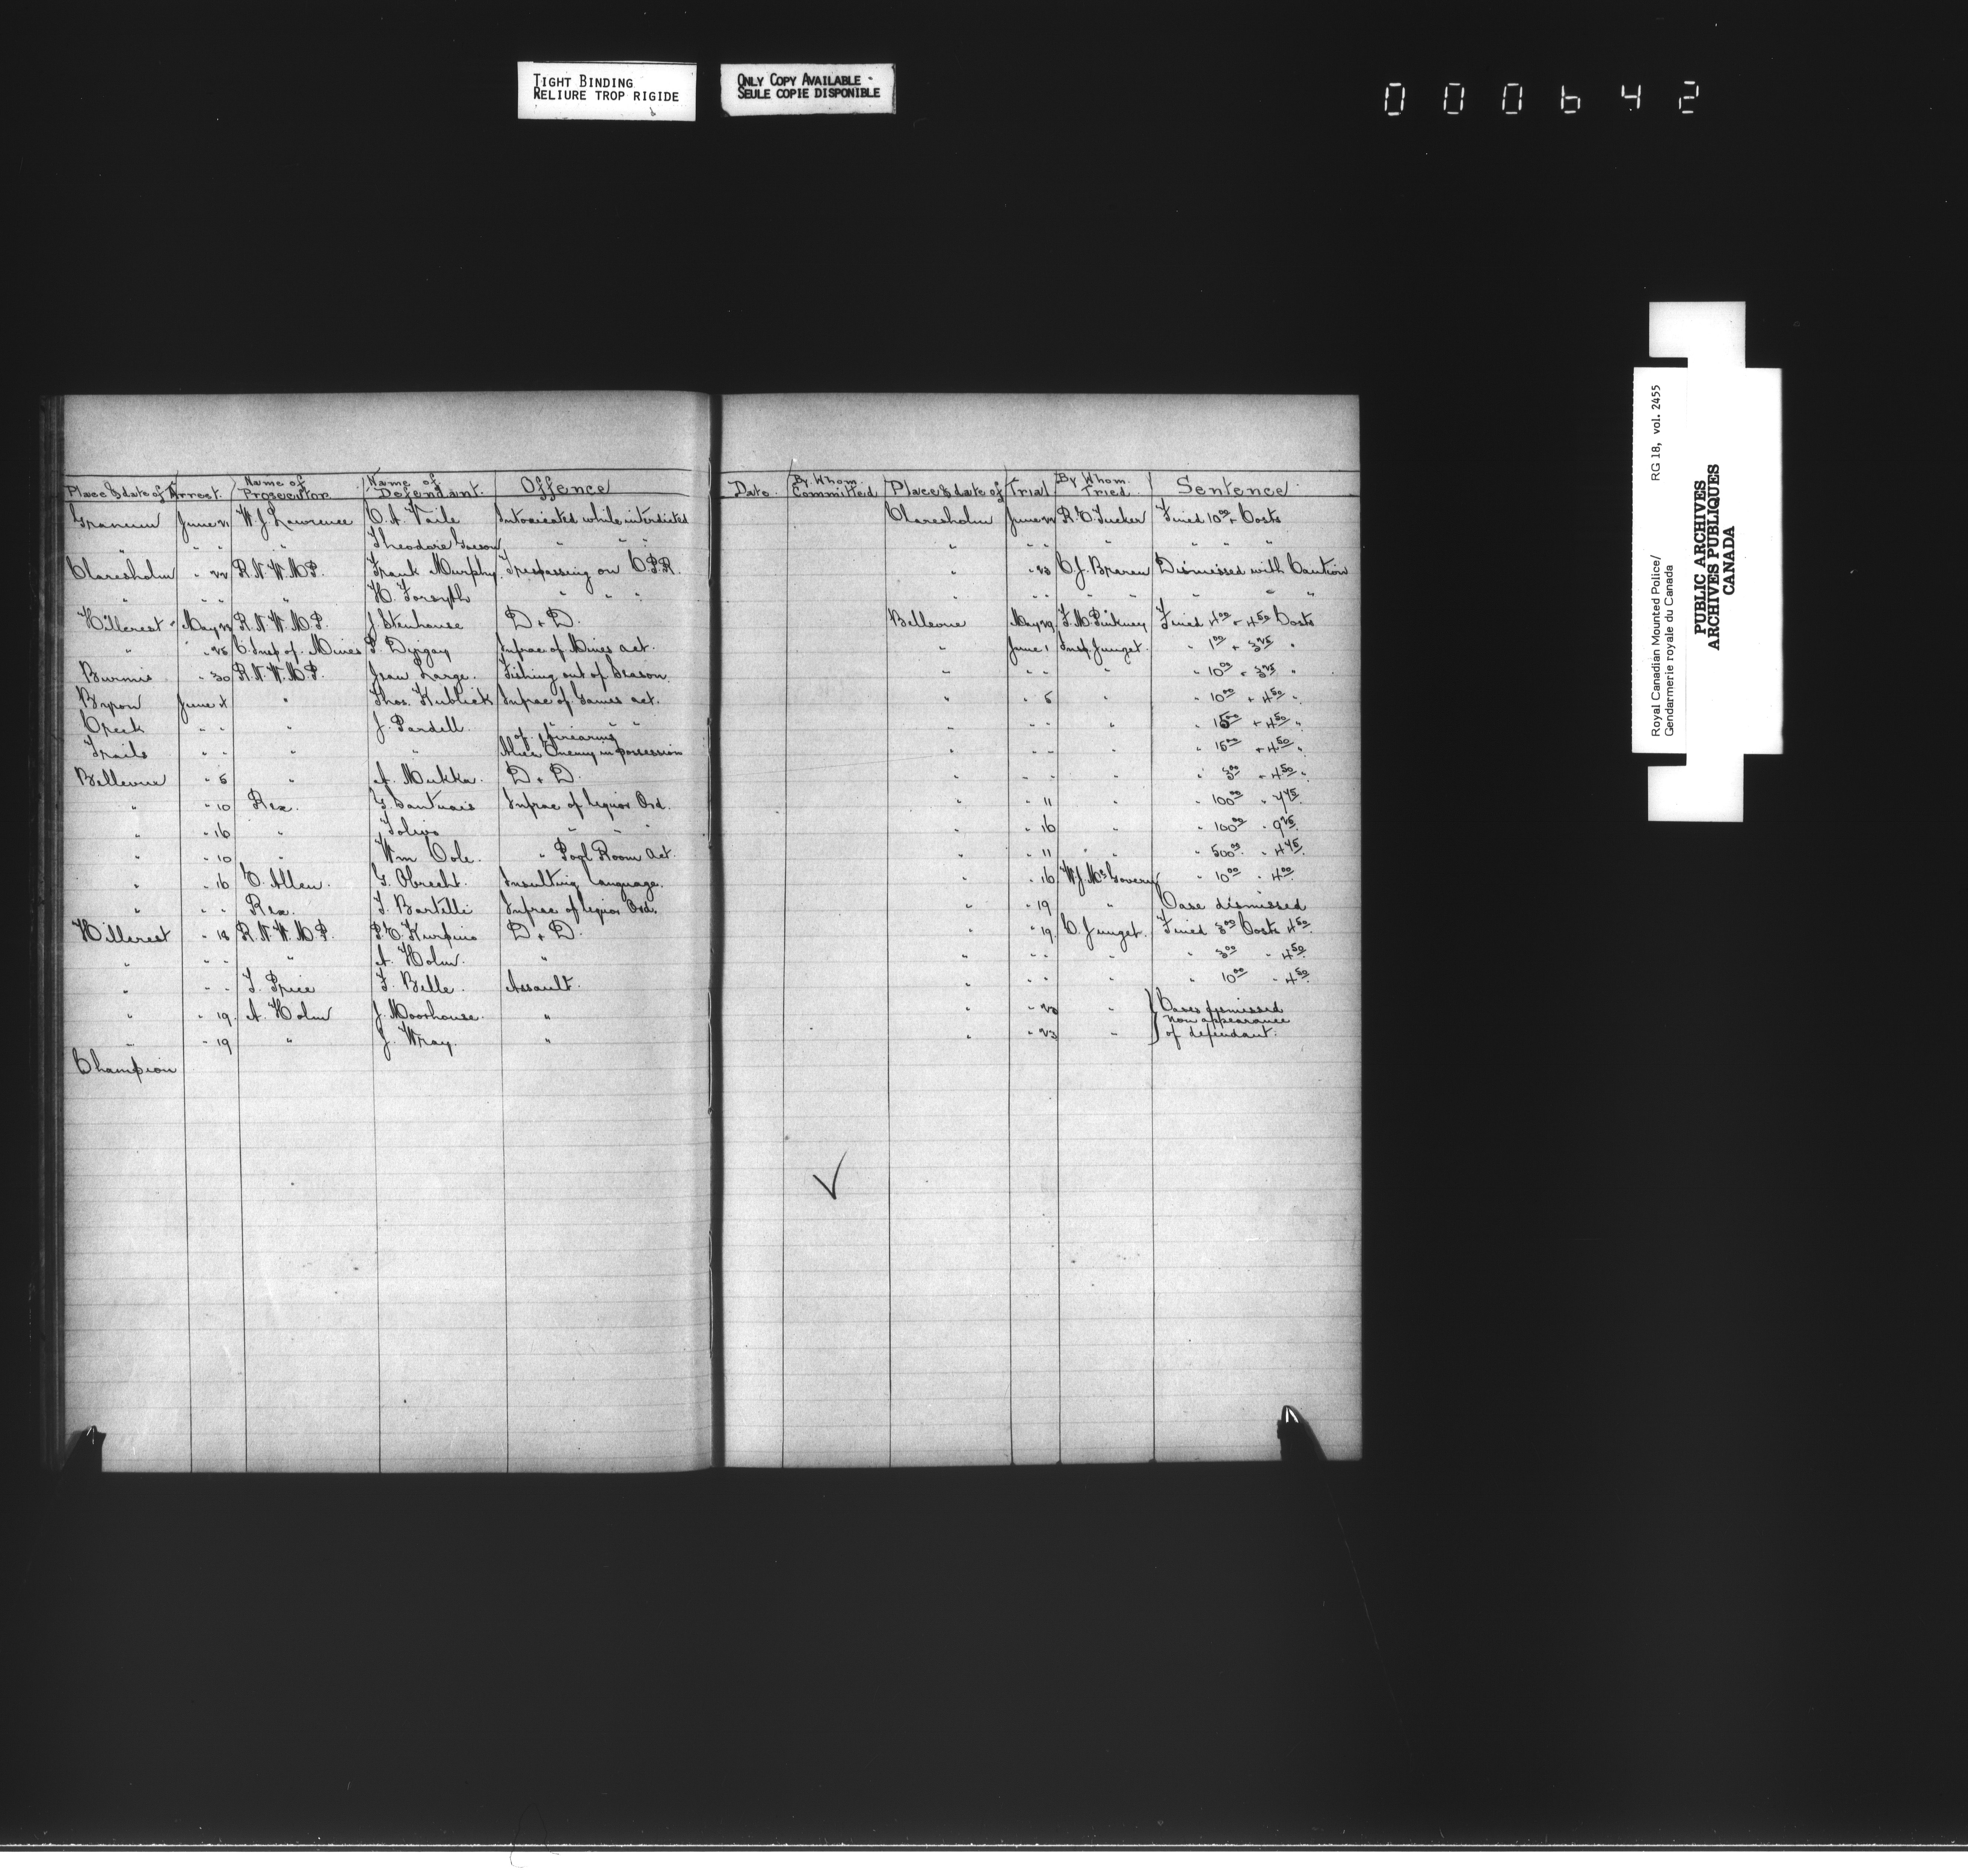 TIGHT BINDING
RELIURE TROP RIGIDE
ONLY COPY AVAILABLE -
SEULE COPIE DISPONIBLE
000642
Place & date of Arrest. Name of Prosecutor Name of Defendant. Offence Date By Whom Committed Place & date of Trial By Whom Tried. Sentence
Granum June 21 W. J. Lawrence C. A. Vaile Intoxicated while interdicted Claresholm June 22 R. C. Tucker Fined 10 00 + Costs
" " " " Theodore " " " " " " " " " " "
Claresholm " 22 R. N. W. M. P. Frank Murphy. Trespassing on C.P.R. " " 23 C. J. Braren Dismissed with Caution
" " " " H. Forsyth " " " " " " " " " "
Hillcrest " May 23 R. N. W. M. P. J. Stenhouse D + D. Bellevue May 29 F. M. Pinkney Fined 4 00 + 4 50 Costs
" " 25 C. Insp of. Mines P. Infrac of Mines act. " June 1 Insp. Junget. " 1 00 + 3 25 "
Burmis " 30 R. N. W. M. P. Jean Large. Fishing out of Season. " " " " " 10 00 + 3 25 "
Byron June 4 " Thos. Kublick Infrac of Games act. " " 5 " " 10 00 + 4 50 "
Creek " " " J. Pardell. " of " " " " " " " 15 00 + 4 50 "
Trails " " " " Alien Enemy in possession of firearms " " " " 15 00 + 4 50 "
Bellevue " 5 " A. Mukka. D + D. " " " " " 3 00 + 4 50 "
" " 10 Rex. G. Santuais Infrac of liquor Ord. " " 11 " " 100 00 " 7 75
" " 16 " Tolivo " " " " " 16 " " 100 00 " 9 25
" " 10 " Wm Cole. " Pool Room Act. " " 11 " " 500 00 " 4 75
" " 16 C. Allen. G. Obrecht. Insulting language. " " 16 W. J. McGovern " 10 00 " 4 00
" " " Rex. F. Bartelli Infrac of liquor Ord. " " 19 " Case dismissed
Hillcrest " 18 R. N. W. M. P. P. C. Kurpius D + D. " " 19. C. Junget. Fined 3 00 Costs 4 50
" " " " A. Holm. " " " " " " 3 00 " 4 50
" " " T. Price F. Belle. Assault. " " " " " 10 00 " 4 50
" " 19. A. Holm J. Moorhouse. " " " 23 " Cases dismissed
non appearance
" " 19 " J. Wray. " " " 23 " of defendant.
Champion
Royal Canadian Mounted Police/ RG 18, vol. 2455
Gendarmerie royale du Canada
PUBLIC ARCHIVES
ARCHIVES PUBLIQUES
CANADA